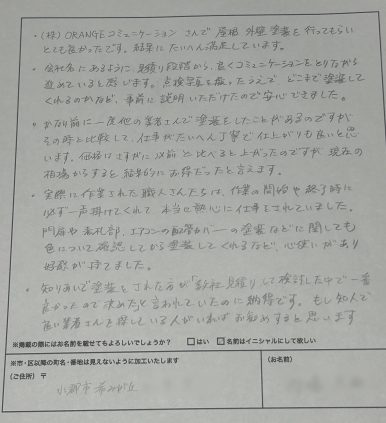 ・(株)ORANGEコミュニケーションさんで屋根外壁塗装を行ってもらい
とても良かったです。結果にたいへん満足しています。
・会社名にあるように、見積り段階から、良くコミュニケーションをとりながら
進めていると感じます。点検写真を撮ったうえで どこまで塗装して
くれるのかなど、事前に説明いただけたので安心できました。
・かなり前に一度他の業者さんで塗装をしたことがあるのですが
その時と比較して、仕事がたいへん丁寧で仕上がりも良いと思
います。価格はさすがに以前と比べると上がったのですが 現在の
相場からすると結果的にお得だったと言えます。
・実際に作業された職人さんたちは、作業の開始や終了時に
必ず一声掛けてくれて 本当に熱心に仕事をされていました。
門扉や表札部、エアコンの配管カバーの塗装などに関しても
色について確認してから塗装してくれるなど、心使いがあり
好感が持てました。
・知りあいで塗装をされた方が「数社見積りして検討した中で一番
良かったので決めた」と言われていたのに納得です。もし知人で
良い業者さんを探している人がいればお勧めすると思います
※掲載の際にはお名前を載せてもよろしいでしょうか? □はい □名前はイニシャルにして欲しい
※市・区以降の町名・番地は見えないように加工いたします
(ご住所) 〒
(お名前)